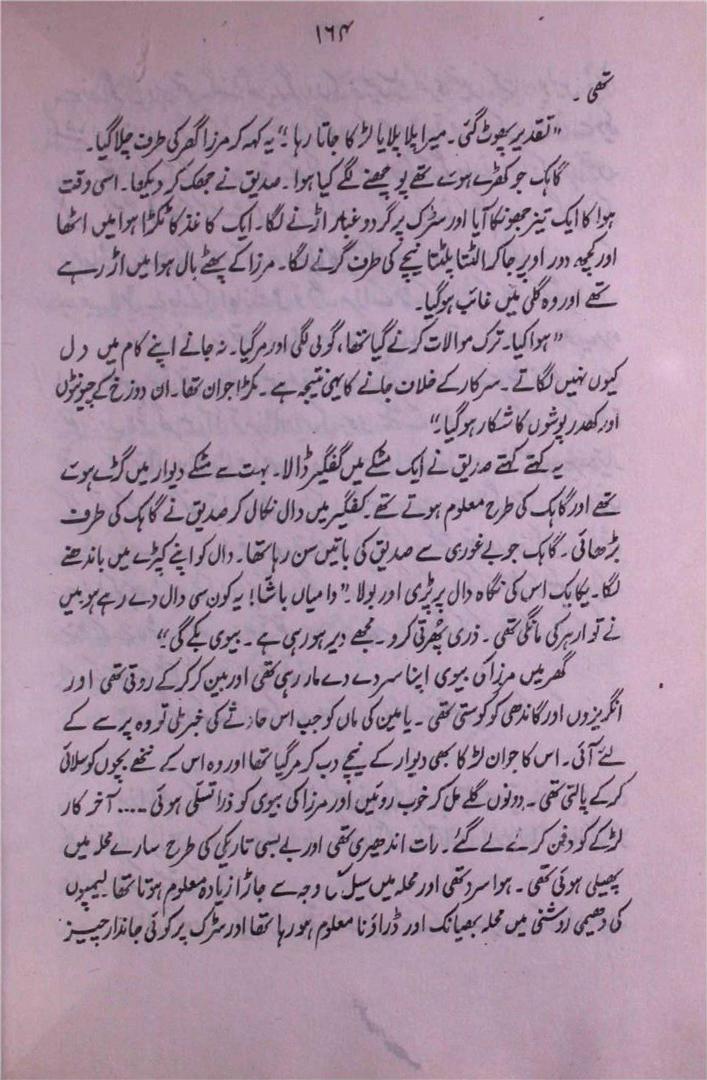 ۱۶۴
تھی ۔
"تقدیر پھوٹ گئی ۔ میرا پلا پلایا لڑکا جاتا رہا ۔" یہ کہہ کر مرزا گھر کی طرف چلا گیا ۔
گاہک جو کھڑے ہوئے تھے پوچھنے لگے کیا ہوا ۔ صدیق نے جھک کر دیکھا ۔ اسی وقت
ہوا کا ایک تیز جھونکا آیا اور سڑک پر گرد و غبار اڑنے لگا ۔ ایک کاغذ کا ٹکڑا ہوا میں اٹھا
اور کچھ دور اوپر جا کر الٹتا پلٹتا نیچے کی طرف گرنے لگا ۔ مرزا کے پھٹے بال ہوا میں اڑ رہے
تھے اور وہ گلی میں غائب ہو گیا ۔
"ہوا کیا ۔ ترک موالات کرنے گیا تھا ، گولی لگی اور مر گیا ۔ نہ جانے اپنے کام میں دل
کیوں نہیں لگاتے ۔ سرکار کے خلاف جانے کا یہی نتیجہ ہے ۔ کڑا جوان تھا ۔ ان دوزخ کے چیونٹوں
اور کھدر پوشوں کا شکار ہو گیا ۔"
یہ کہتے کہتے صدیق نے ایک مٹکے میں کفگیر ڈالا ۔ بہت سے مٹکے دیوار میں گڑے ہوئے
تھے اور گاہک کی طرح معلوم ہوتے تھے ۔ کفگیر میں دال نکال کر صدیق نے گاہک کی طرف
بڑھائی ۔ گاہک جو بے غوری سے صدیق کی باتیں سن رہا تھا ۔ دال کو اپنے کپڑے میں باندھنے
لگا ۔ یکایک اس کی نگاہ دال پر پڑی اور بولا ۔ "وا میاں باشا! یہ کون سی دال دے رہے ہو میں
نے تو ارہر کی مانگی تھی ۔ ذری پھرتی کرو ۔ مجھے دیر ہو رہی ہے ۔ بیوی بکے گی ۔"
گھر میں مرزا کی بیوی اپنا سر دے دے مار رہی تھی اور بین کر کر کے روتی تھی اور
انگریزوں اور گاندھی کو کوستی تھی ۔ یامین کی ماں کو جب اس حادثے کی خبر ملی تو وہ پرسے کے
لئے آئی ۔ اس کا جوان لڑکا بھی دیوار کے نیچے دب کر مر گیا تھا اور وہ اس کے ننھے بچوں کو سلائی
کر کے پالتی تھی ۔ دونوں گلے مل کر خوب روئیں اور مرزا کی بیوی کو ذرا تسلی ہوئی .... آخر کار
لڑکے کو دفن کرنے لے گئے ۔ رات اندھیری تھی اور بے بسی تاریکی کی طرح سارے محلہ میں
پھیلی ہوئی تھی ۔ ہوا سرد تھی اور محلہ میں سیل کی وجہ سے جاڑا زیادہ معلوم ہوتا تھا ۔ لیمپوں
کی دھیمی روشنی میں محلہ بھیانک اور ڈراؤنا معلوم ہو رہا تھا اور سڑک پر کوئی جاندار چیز